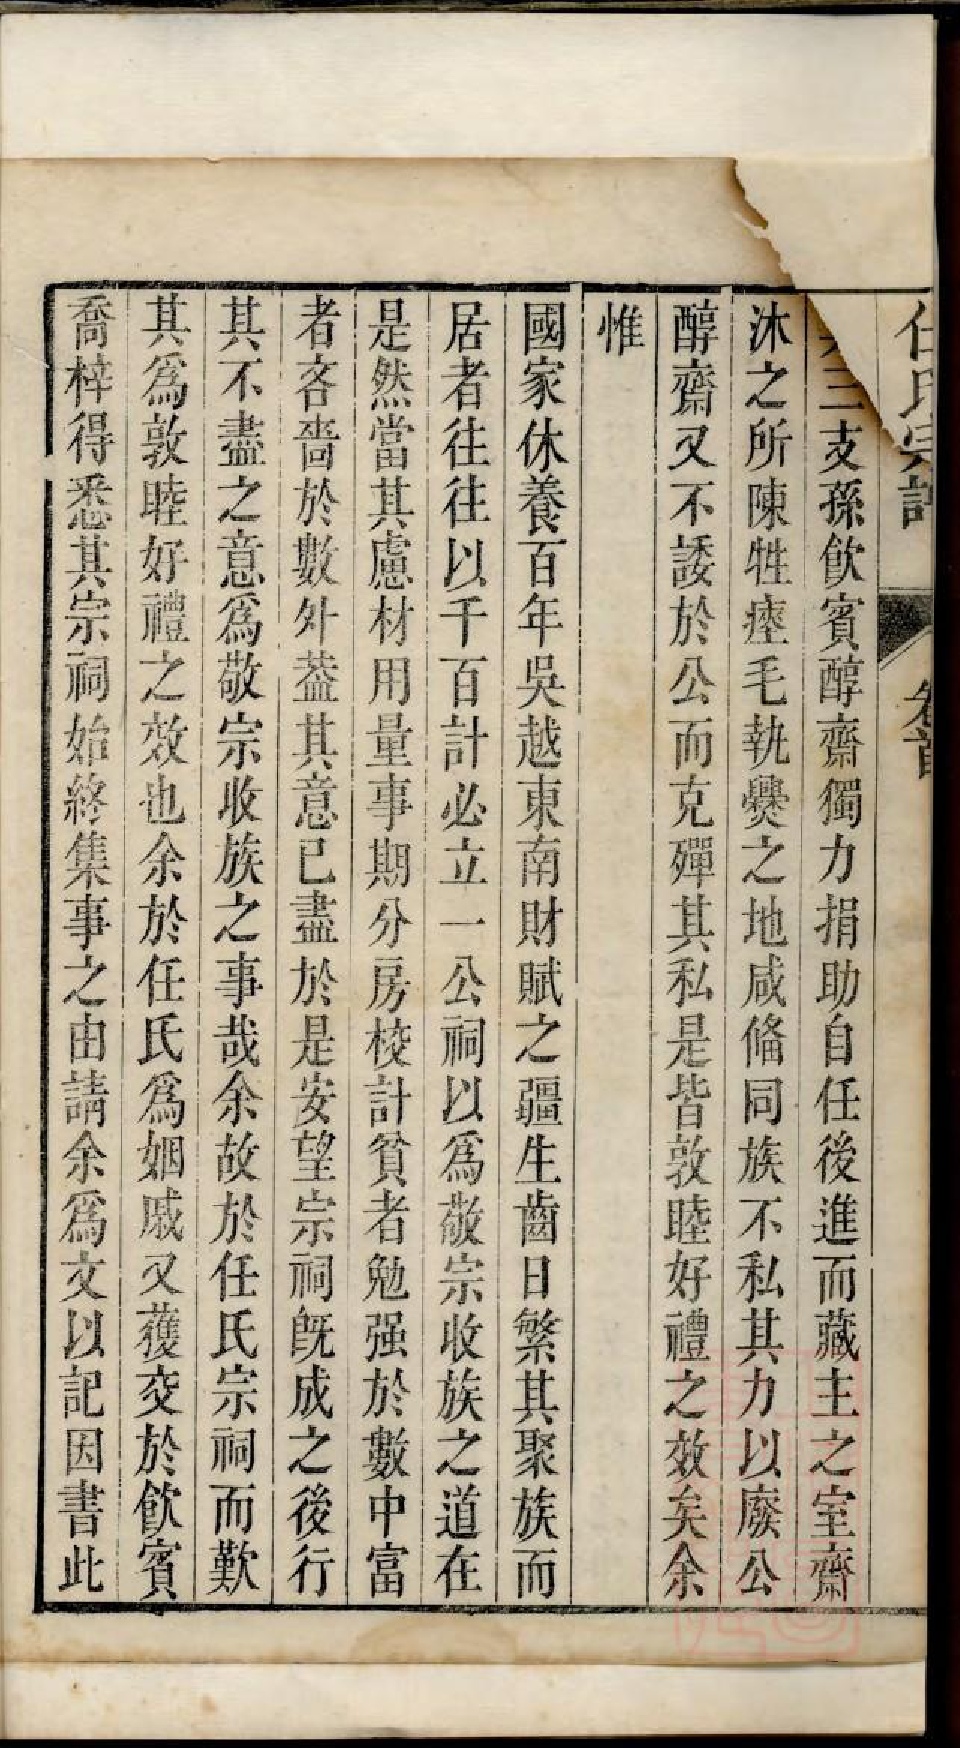 任氏宗譜
卷首
三支孫飲賓醇齋獨力捐助自任後進而藏主之室齋
沐之所陳牲瘞毛執爨之地咸俻同族不私其力以廢公
醇齋又不諉於公而克殫其私是皆敦睦好禮之效矣余
惟
國家休養百年吳越東南財賦之疆生齒日繁其聚族而
居者往往以千百計必立一公祠以爲敬宗收族之道在
是然當其慮材用量事期分房校計貧者勉强於數中富
者吝嗇於數外葢其意已盡於是安望宗祠旣成之後行
其不盡之意爲敬宗收族之事哉余故於任氏宗祠而歎
其爲敦睦好禮之效也余於任氏爲姻戚又獲交於飲賓
喬梓得悉其宗祠始終集事之由請余爲文以記因書此